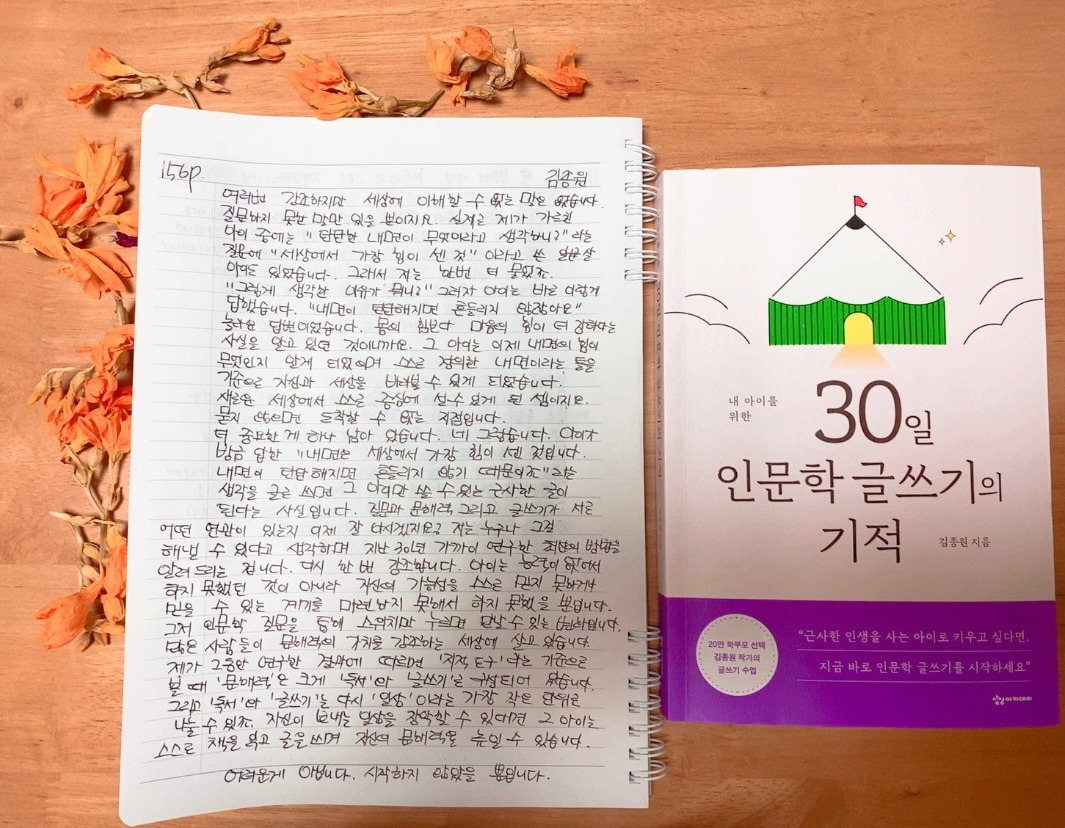 156p. 김종원
여러번 강조하지만 세상에 이해할 수 없는 말은 없습니다.
질문하지 못한 말만 있을 뿐이지요. 실제로 제가 가르친
아이 중에는 "탄탄한 내면이 무엇이라고 생각하니?" 라는
질문에 "세상에서 가장 힘이 센 것" 이라고 쓴 일곱살
아이도 있었습니다. 그래서 저는 한번 더 물었죠.
"그렇게 생각한 이유가 뭐니?" 그러자 아이는 바로 이렇게
답했습니다. "내면이 탄탄해지면 흔들리지 않잖아요"
놀라운 답변이었습니다. 몸의 힘보다 마음의 힘이 더 강하다는
사실을 알고 있던 것이니까요. 그 아이는 이제 내면의 힘이
무엇인지 알게 되었으며 스스로 정의한 내면이라는 틀을
기준으로 자신과 세상을 바라볼 수 있게 되었습니다.
새로운 세상에서 스스로 중심에 설 수 있게 된 셈이지요.
묻지 않으면 도착할 수 없는 지점입니다.
더 중요한 게 하나 남아 있습니다. 네 그렇습니다. 아이가
방금 답한 "내면은 세상에서 가장 힘이 센 것입니다.
내면이 탄탄해지면 흔들리지 않기 때문이죠" 라는
생각을 글로 쓰면 그 아이만 쓸 수 있는 근사한 글이
된다는 사실입니다. 질문과 문해력 그리고 글쓰기가 서로
어떤 연관이 있는지 이제 잘 아시겠지요? 저는 누구나 그걸
해낼 수 있다고 생각하며 지난 30년 가까이 연구한 최선의 방법을
알려 드리는 겁니다. 다시 한 번 강조합니다. 아이는 능력이 없어서
하지 못했던 것이 아니라 자신의 가능성을 스스로 믿지 못하거나
믿을 수 있는 계기를 마련하지 못해서 하지 못했을 뿐입니다.
그저 인문학 질문을 통해 스위치만 누르면 만날 수 있는
많은 사람들이 문해력의 가치를 강조하는 세상에 살고 있습니다.
제가 그동안 연구한 결과에 따르면 '지적 도구' 라는 기준으로
볼 때 '문해력'은 크게 '독서'와 '글쓰기'로 구성되어 있습니다.
그리고 '독서'와 '글쓰기'는 다시 '일상' 이라는 가장 작은 단위로
나눌 수 있죠. 자신이 보내는 일상을 장악할 수 있다면 그 아이는
스스로 책을 읽고 글을 쓰며 자신의 문해력을 높일 수 있습니다.
어려운게 아닙니다. 시작하지 않았을 뿐입니다.
내 아이를
위한
30일
인문학 글쓰기의
기적
김종원 지음
20만 학부모 선택
김종원 작가의
글쓰기 수업
"근사한 인생을 사는 아이로 키우고 싶다면,
지금 바로 인문학 글쓰기를 시작하세요"
상상아카데미